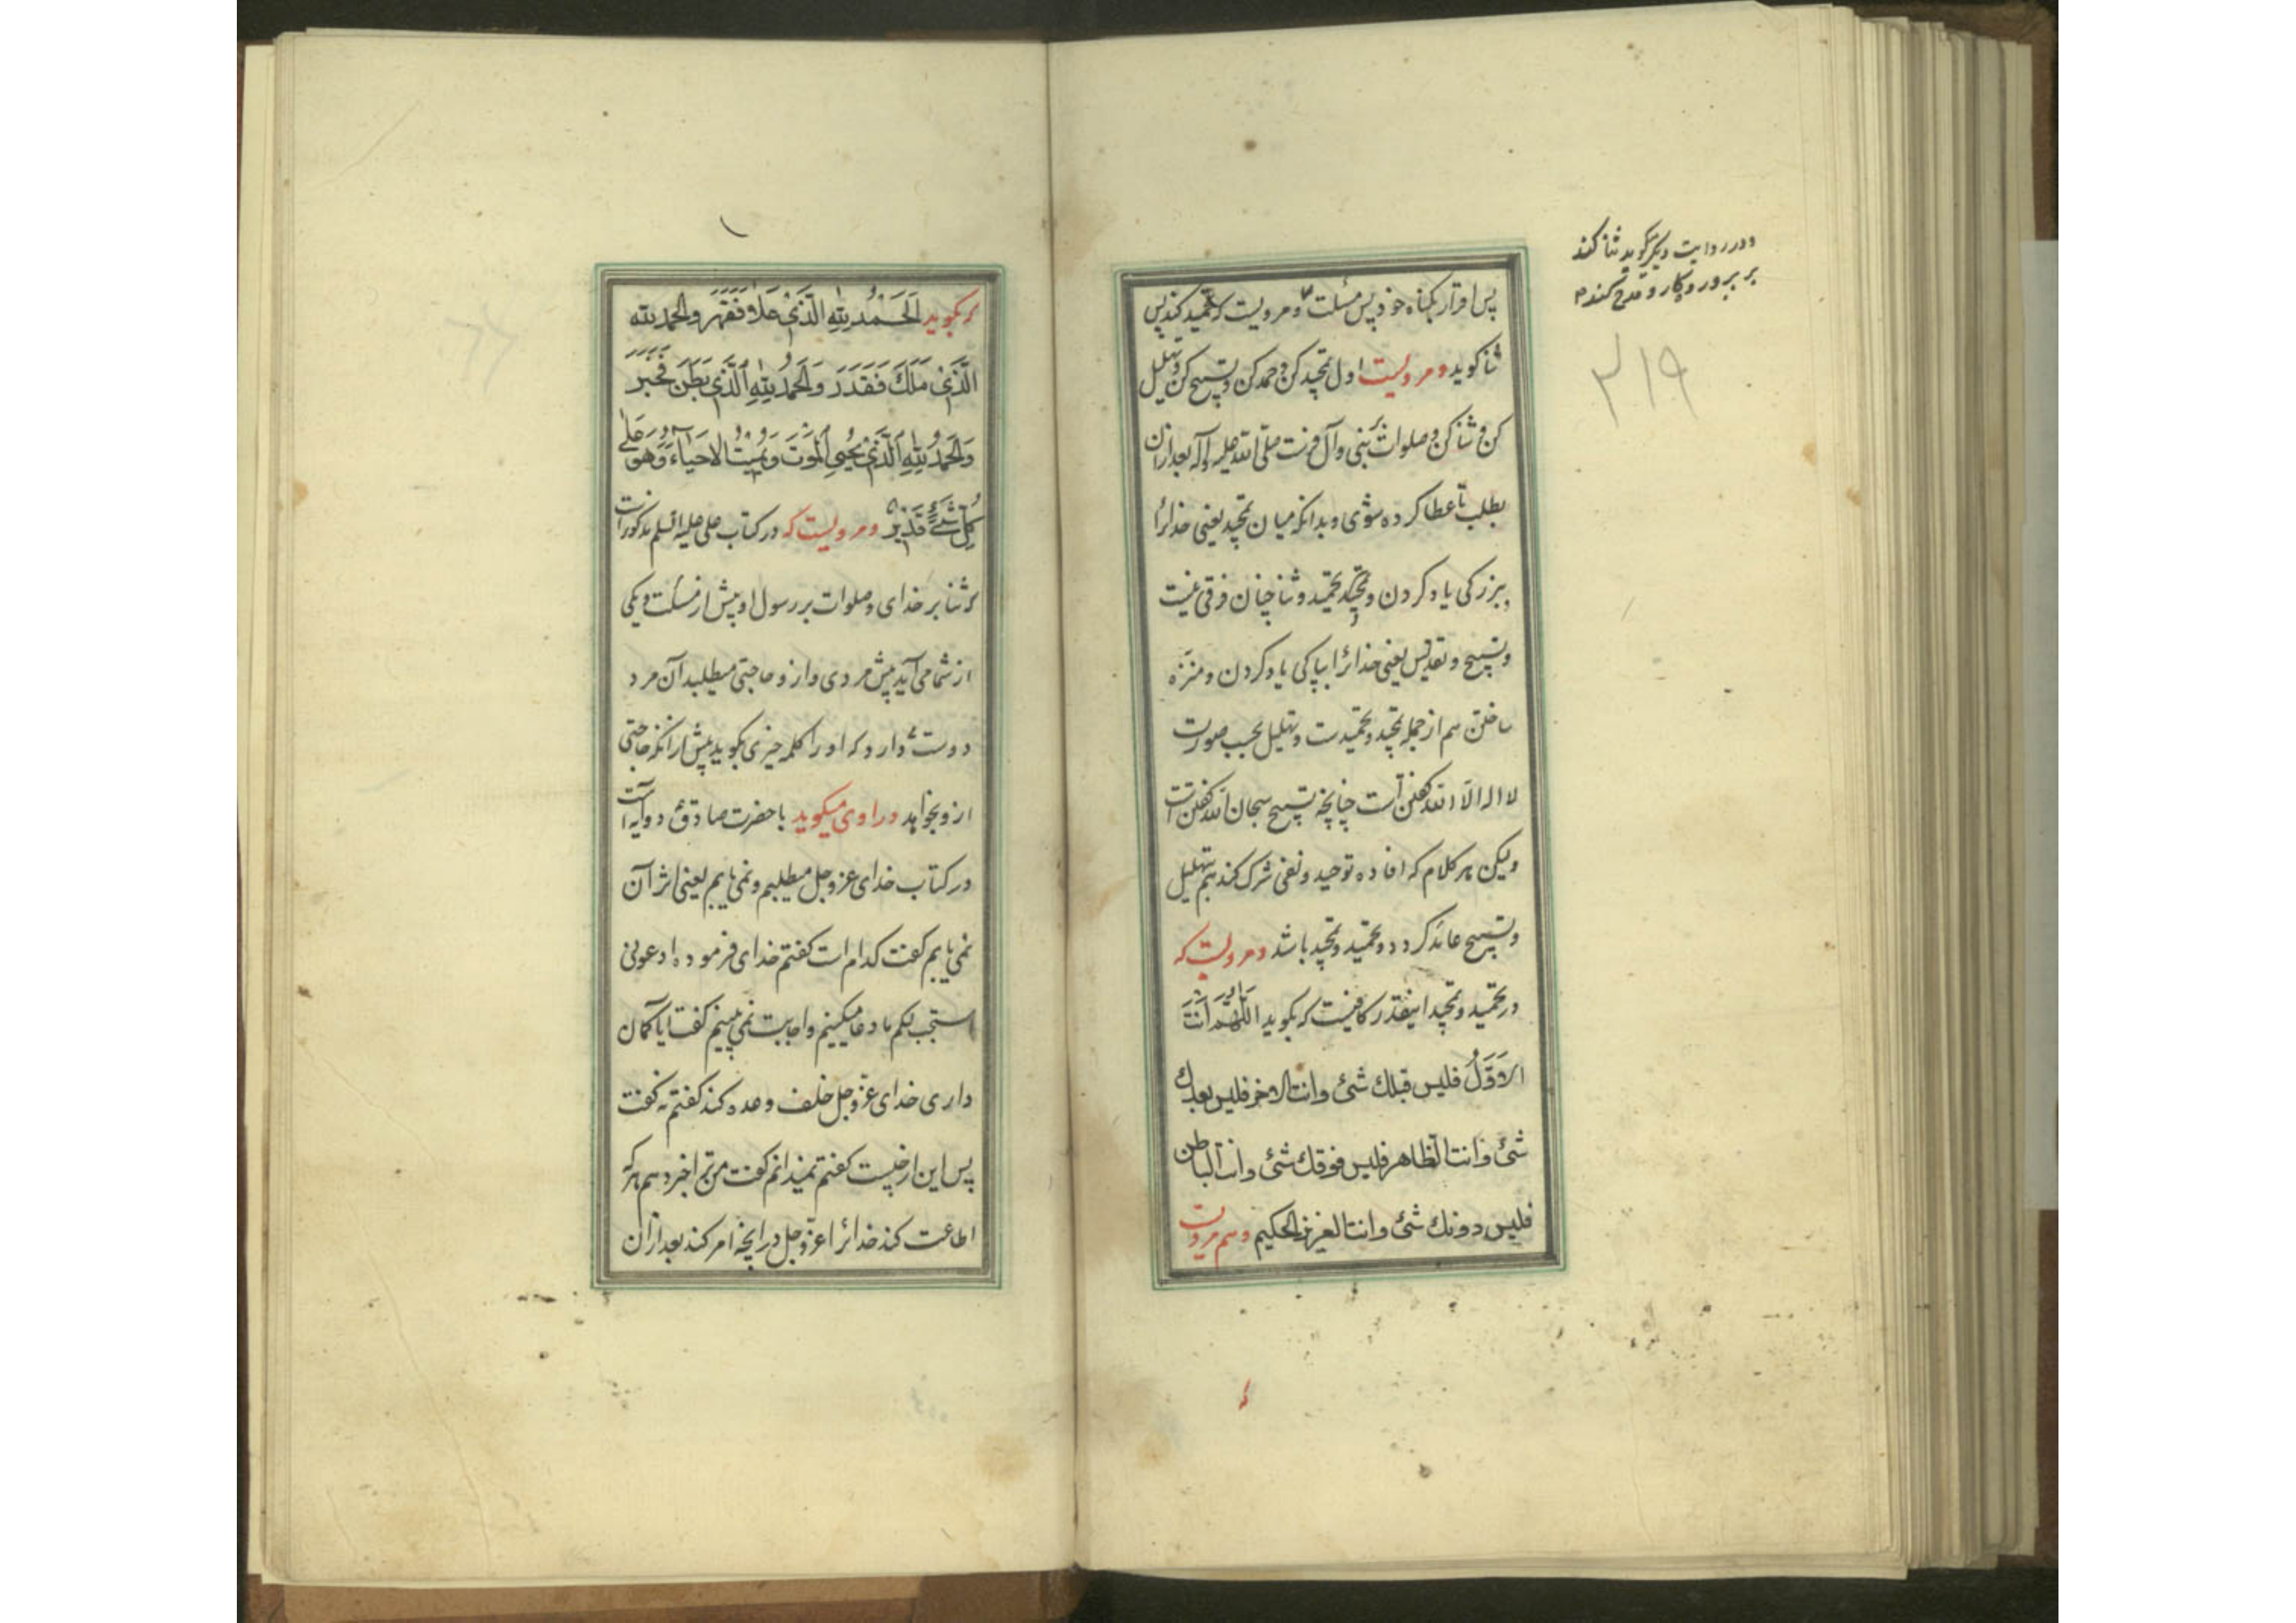 پس اقرار بکناه خود پس مسئلت و مرویست که تحمید کند پس
ثنا کوید و مرویست اول تمجید کن و حمد کن و تسبیح کن و تهلیل
کن و ثنا کن و صلوات بر نبی و آل فرست صلی الله علیه و آله بعد ازان
بطلب تا عطا کرده شوی و بدانکه میان تمجید یعنی خدایرا
ببزرکی یاد کردن و تمجید و تحمید و ثنا چنان فرقی نیست
و تسبیح و تقدیس یعنی خدایرا بپاکی یاد کردن و منزه
ساختن هم از جمله تمجید و تحمیدست و تهلیل بحسب صورت
لا اله الا الله کفتن است چنانچه تسبیح سبحان الله کفتن است
ولیکن هر کلام که افاده توحید و نفی شرک کند هم تهلیل
و تسبیح عائد کردد و تحمید و تمجید باشد و مرویست که
در تحمید و تمجید اینقدر کافیست که بکوید اللَّهُمَّ اَنْتَ
الاَوَّلُ فلیس قبلك شئ وانت الاخر فلیس بعدك
شئ وانت الظاهر فلیس فوقك شئ وانت الباطن
فلیس دونك شئ وانت العزیز الحکیم و هم مرویست
و در روایت دیکر بکوید ثنا کند
بر پروردکار و مدح کند
۲۱۹
که بکوید اَلْحَمْدُ لِلّٰهِ الَّذی عَلاَ فَقَهَرَ والحمد لله
الَّذی مَلَكَ فَقَدَرَ وَالحَمْدُ لِلّٰهِ الَّذی بَطَنَ فَخَبَرَ
وَالحَمْدُ لِلّٰهِ الَّذی یُحْیِی المَوْتٰی وَیُمیتُ الاَحْیَاءَ وَهُوَ عَلٰی
کُلِّ شَیْءٍ قَدیرٌ و مرویست که در کتاب علی علیه السلم مذکور است
که ثنا بر خدای و صلوات بر رسول او پیش از مسئلت و یکی
از شما می آید پیش مردی و ازو حاجتی میطلبد آن مرد
دوست دارد که او را کلمه خیری بکوید پیش ازانکه حاجتی
ازو بخواهد و راوی میکوید با حضرت صادق ع دو آیه است
در کتاب خدای عز و جل میطلبم و نمی یابم یعنی اثر آن
نمی یابم کفت کدام است کفتم خدای فرموده ادعونی
استجب لکم ما دعا میکنیم و اجابت نمی بینیم کفت ایا کمان
داری خدای عز و جل خلف وعده کند کفتم نه کفت
پس این از چیست کفتم نمیدانم کفت من ترا خبر دهم هر که
اطاعت کند خدایرا عز و جل در انچه امر کند بعد ازان